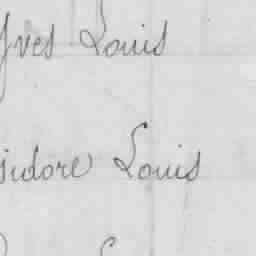 Yves Louis
Isidore Louis